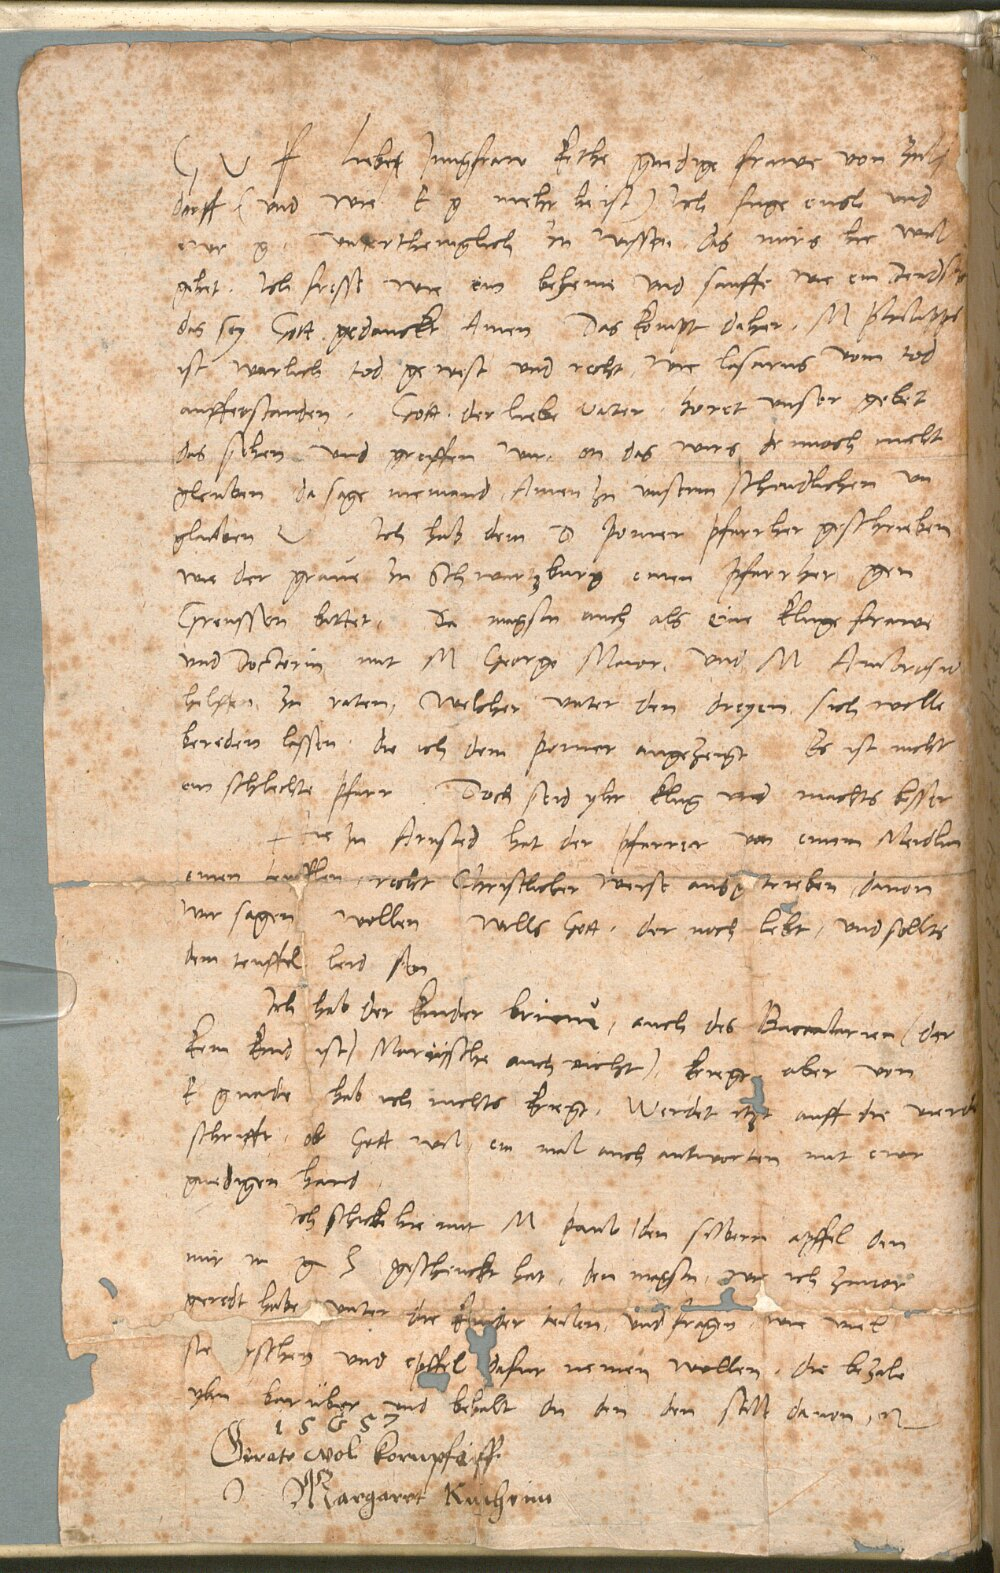 G V F Liebe Jungfraw Kethe gnedige frawe von Zuls
dorff ( vnd wie E g mehr heist ) Ich fuge euch vnd
ewr g. vntertheniglich zu wissen, das mirs hie wol
gehet. Ich fresse wie ein beheme vnd sauffe wie ein deudscher
das sey Gott gedanckt Amen Das kompt daher. M Philipps
ist warlich tod gewest vnd recht, wie Lasarus vom tod
aufferstanden. Gott der liebe vater horet vnser gebet
das sehen vnd greiffen wir, on das wirs dennoch nicht
gleuben da sage niemand Amen zu vnserm schendlichen vn
glauben Ich hab dem D Pomer pfarrher geschrieben
wie der graue zu Schwartzburg einen pfarrher gen
Greussen bittet. Da magstu auch als eine kluge frawe
vnd Doctorin mit M George Maior, vnd M Ambrosio
helffen zu raten, welcher vnter den dreyen sich wolle
bereden lassen die ich dem Pomer angezeigt Es ist nicht
ein schlechte pfarr Doch seid yhr klug vnd machts besser
Hie zu Arnsted hat der pfarrer von einem Meidlin
einen teuffel recht Christlicher weise ausgetrieben, dauon
wir sagen wollen wills Gott, der noch lebt, vnd sollts
dem teuffel leid sein
Ich hab der kinder brieue, auch des Baccalarien (der
kein kind ist) Marusische auch nicht) kriegt aber von
E gnade hab ich nichts kriegt. Werdet itzt auff die vierde
schrifft, ob Gott wil, ein mal auch antworten mit ewr
gnedigen hand.
Ich schicke hie mit M Paul den silbern apffel den
mir m g h geschenckt hat, den magstu, wie ich zuuor
geredt habe vnter die kinder teilen, vnd fragen, wie viel
sie kirschen vnd epffel dafur nemen wollen, die bezale
yhn barüber vnd behalt du den den stiel dauon,
Margaret